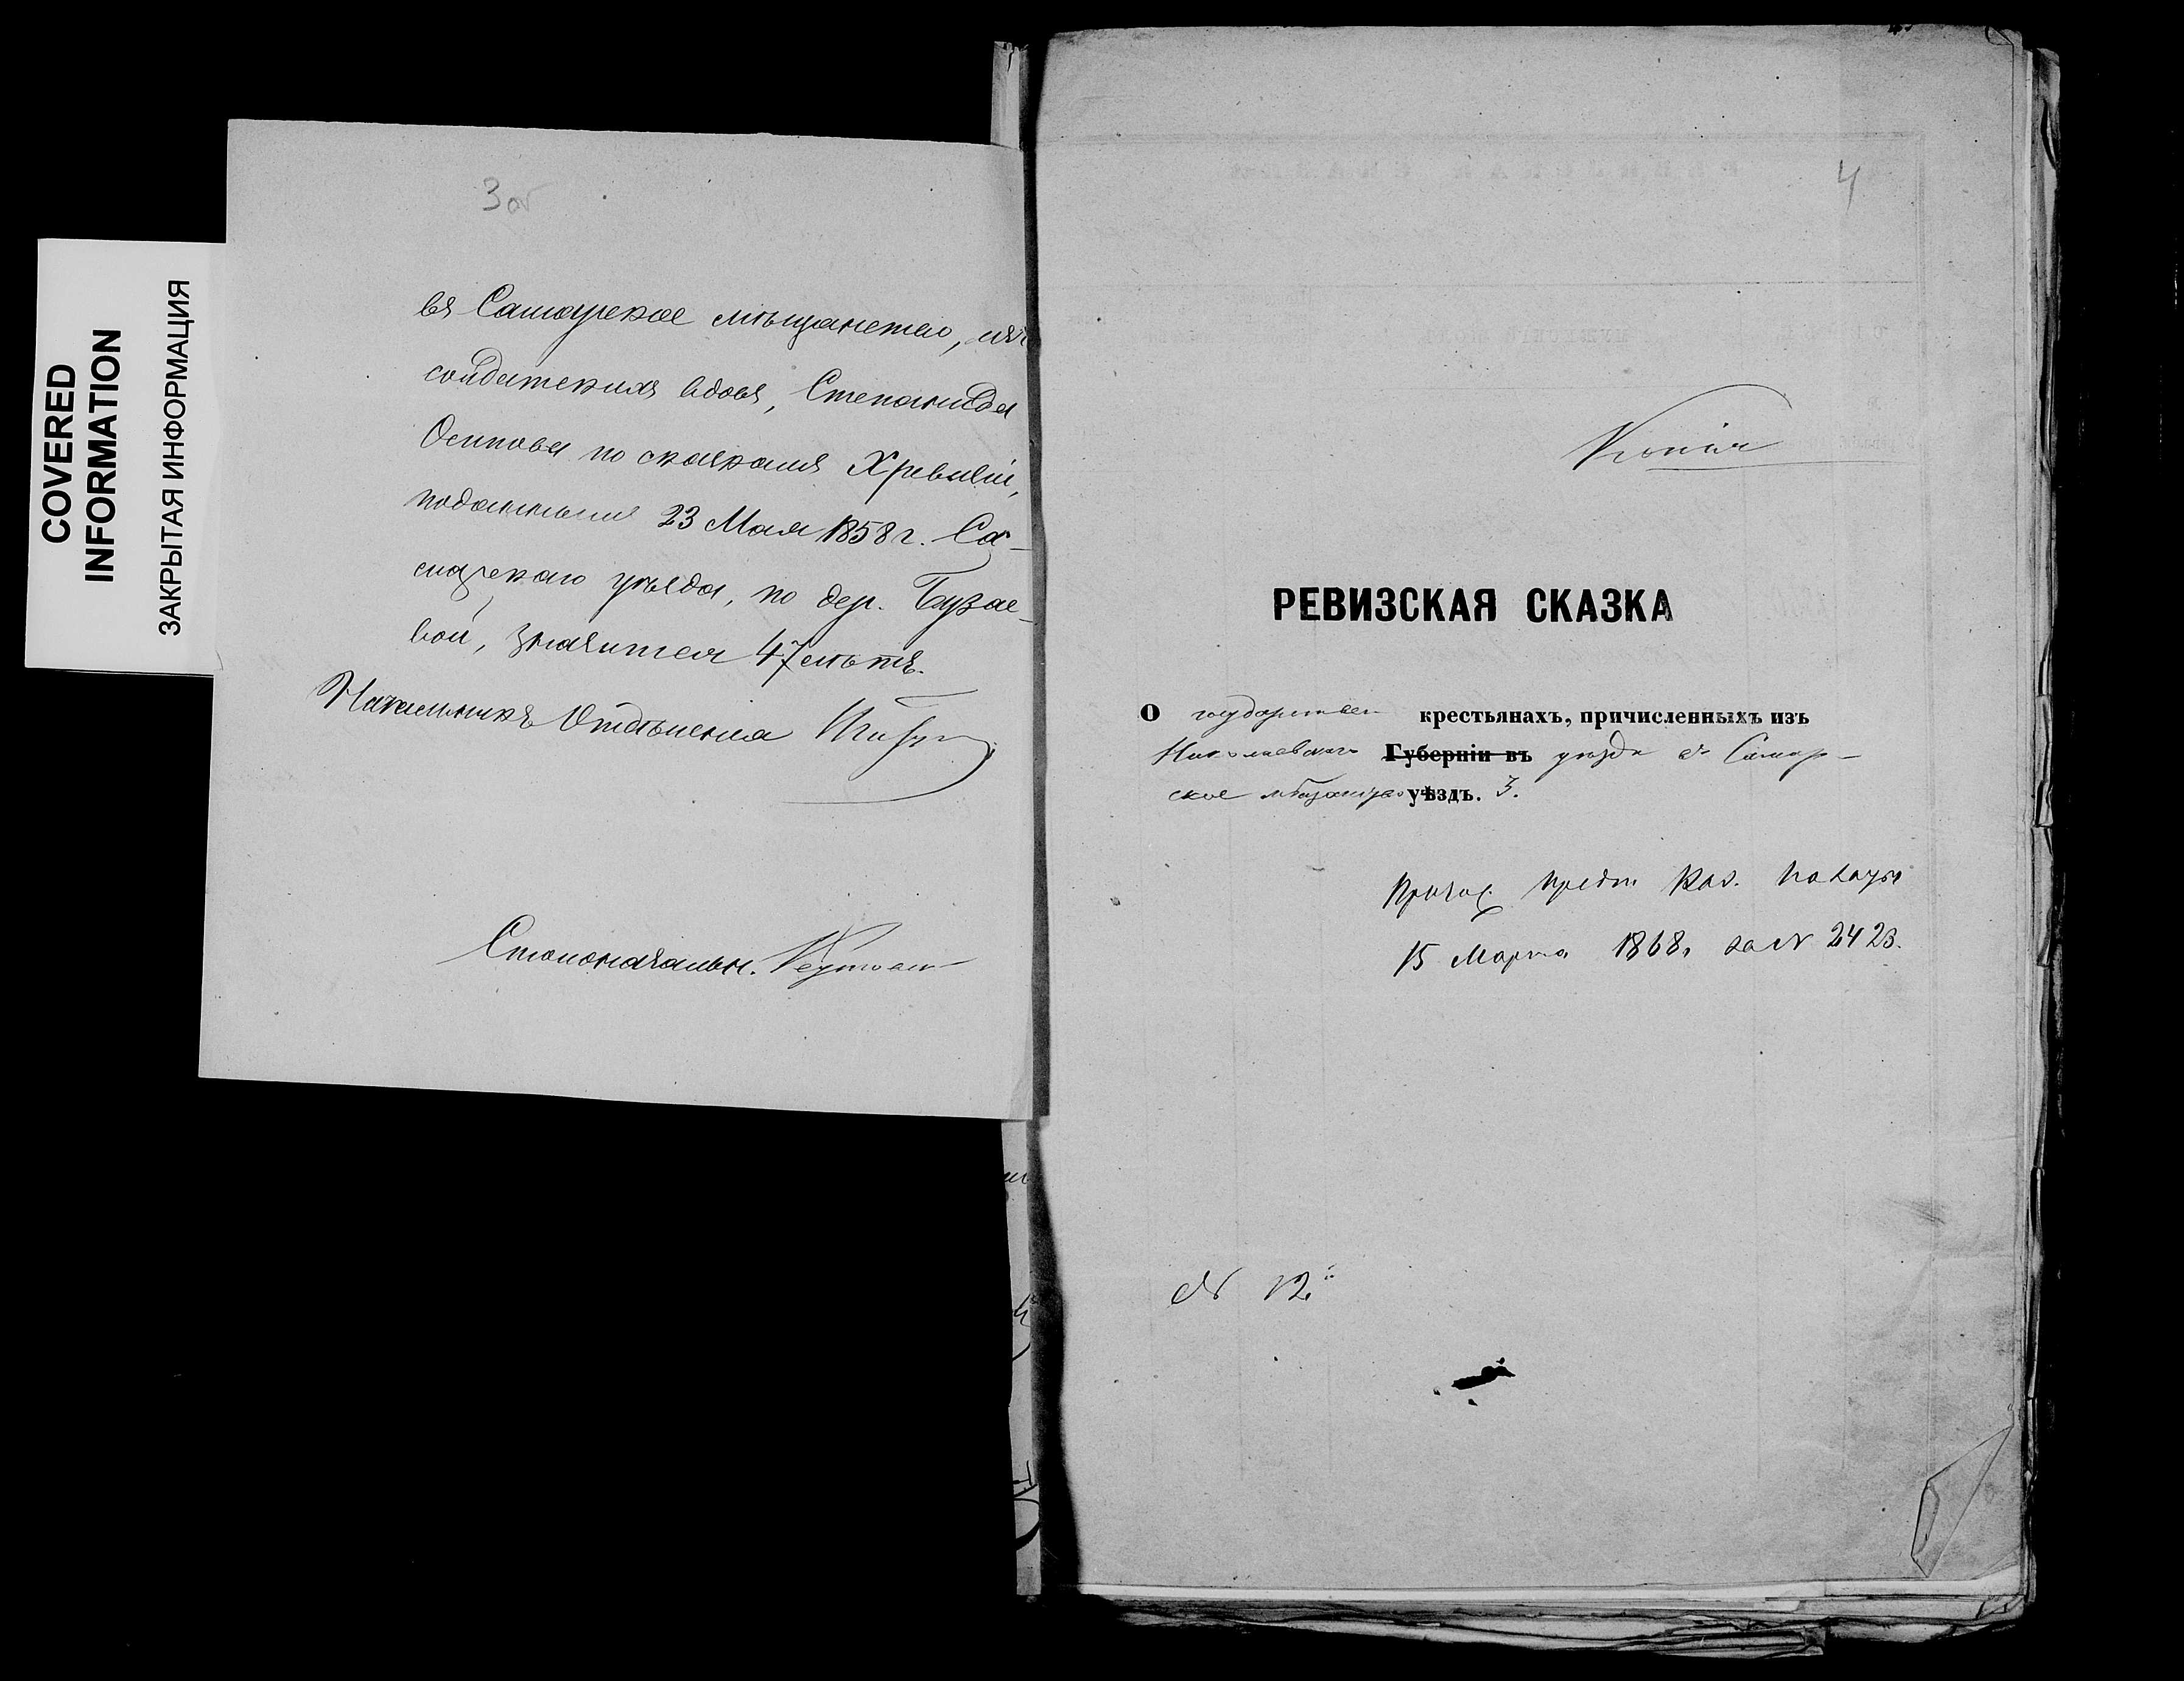 COVERED
INFORMATION
ЗАКРЫТАЯ ИНФОРМАЦИЯ
3 об
въ Самарское мѣщанство, изъ
солдатскихъ вдовъ, Степанида
Осипова по сказкамъ X ревизіи,
поданнымъ 23 Мая 1858 г. Са-
марскаго уѣзда, по дер. Бузае-
вой, значится 47 лѣтъ.
Начальникъ Отдѣленія
Столоначальн.
4
Копія
РЕВИЗСКАЯ СКАЗКА
О государствен крестьянахъ, причисленныхъ изъ
Николаевскаго Губерніи въ уѣзда въ Самар-
ское мѣщанство уѣздъ. 3.
Причис. предп. Каз. Палаты
15 Марта 1868 за № 2423.
№ 12.